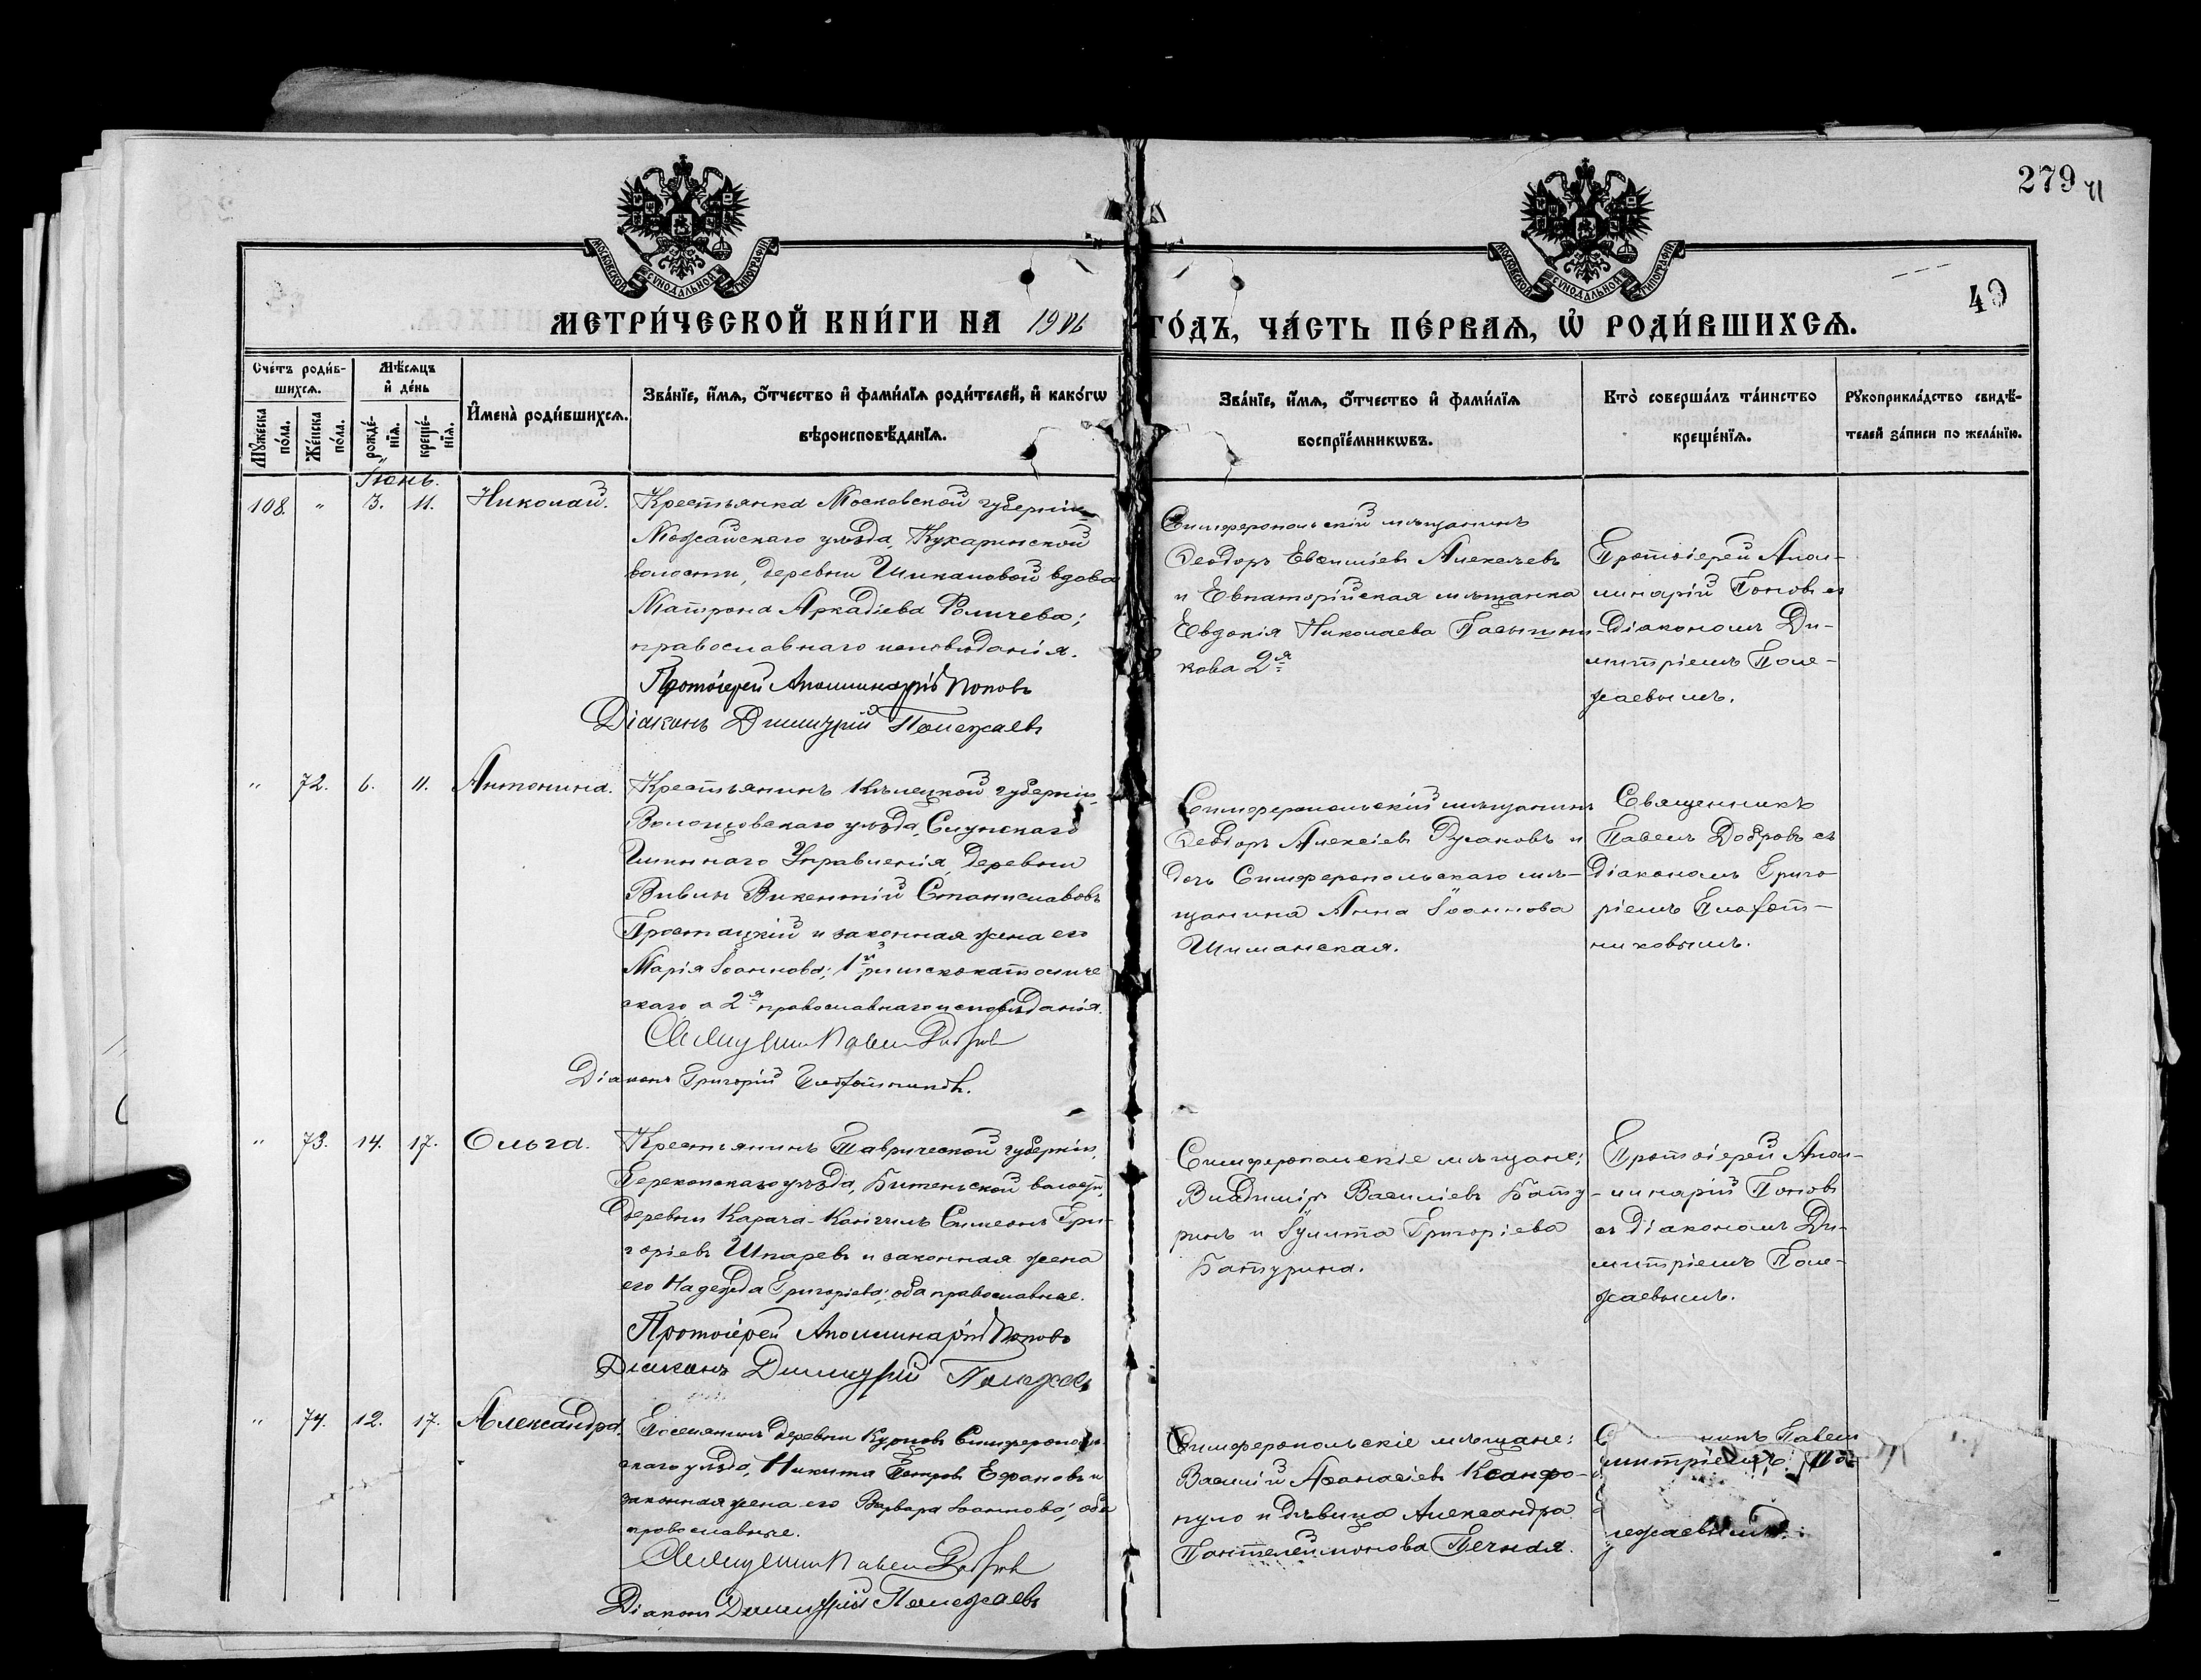 279
49
МОСКОВСКОЙ СѴНОДАЛЬНОЙ ТИПОГРАФІИ
МОСКОВСКОЙ СѴНОДАЛЬНОЙ ТИПОГРАФІИ
МЕТРИ́ЧЕСКОЙ КНИ́ГИ НА 1906 ГО́ДЪ, ЧА́СТЬ ПЕ́РВАѦ, Ѡ҆ РОДИ́ВШИХСѦ.
Сче́тъ роди́в-
шихсѧ.
Мꙋ́жеска по́ла.
Же́нска по́ла.
Мѣ́сѧцъ
и҆ де́нь
рожде́-
нїѧ.
креще́-
нїѧ.
И҆мена̀ роди́вшихсѧ.
Зва́нїе, и҆́мѧ, ѻ҆́тчество и҆ фами́лїѧ роди́телей, и҆ како́гѡ
вѣроисповѣ́данїѧ.
Зва́нїе, и҆́мѧ, ѻ҆́тчество и҆ фами́лїѧ
воспрїе́мникѡвъ.
Кто̀ соверша́лъ та́инство
креще́нїѧ.
Рꙋкоприкла́дство свидѣ́-
телей за́писи по жела́нїю.
Іюнь.
108. " 3. 11. Николай.
Крестьянка Московской губерніи
Можайскаго уѣзда, Кукаринской
волости, деревни Шикановой вдова
Матрона Аркадіева Фомичева;
православнаго исповѣданія.
Протоіерей Аполлинарій Поповъ
Діаконъ Димитрій Полежаевъ
Симферопольскій мѣщанинъ
Ѳеодоръ Евсиміевъ Алекачевъ
и Евпаторійская мѣщанка
Евдокія Николаева
кова 2я
Протоіерей Апол-
линарій Поповъ съ
Діакономъ Ди-
митріемъ Поле-
жаевымъ.
" 72. 6. 11. Антонина.
Крестьянинъ Кѣлецкой губерніи
Влощовскаго уѣзда, Слупскаго
Гминнаго Управленія, деревни
Викентій Станиславовъ
и законная жена его
Марія Іоаннова; 1й римскокатоличе
скаго а 2я православнаго исповѣданія.
Священникъ Павелъ Добровъ
Діаконъ Григорій Плотниковъ.
Симферопольскій мѣщанинъ
Ѳеодоръ Алексіевъ Русаковъ и
дочь Симферопольскаго мѣ-
щанина Анна Іоаннова
Шиманская.
Священникъ
Павелъ Добровъ съ
Діакономъ Григо
ріемъ
никовымъ.
" 73. 14. 17. Ольга.
Крестьянинъ Таврической губерніи,
Перекопскаго уѣзда, Битеньской волости,
деревни Карача-Кангилъ Симеонъ Гри-
горіевъ Шпаревъ и законная жена
его Надежда Григоріева; оба православные.
Протоіерей Аполлинарій Поповъ
Діаконъ Димитрій Полежаевъ
Симферопольскіе мѣщане:
Владиміръ Василіевъ Бату-
ринъ и Іулита Григоріева
Батурина.
Протоіерей Апол-
линарій Поповъ
съ Діакономъ Ди-
митріемъ Поле-
жаевымъ.
" 74. 12. 17. Александра.
Поселянинъ деревни Курцовъ Симферополь-
скаго уѣзда, Никита Петровъ Ефановъ и
законная жена его Варвара Іоаннова; оба
православные.
Священникъ Павелъ Добровъ
Діаконъ Димитрій Полежаевъ
Симферопольскіе мѣщане:
Василій Аѳанасіевъ Ксанфо-
пуло и дѣвица Александра
Пантелеимонова Печная.
С никъ Павелъ
митріемъ
лежаевымъ.